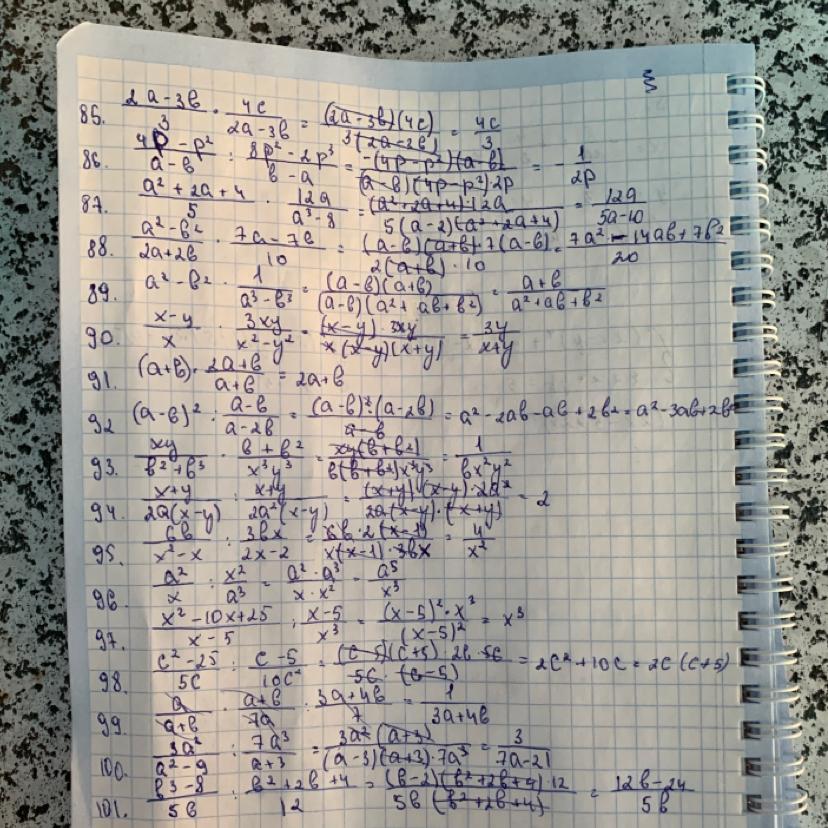 85. (2a-3b)/3 · 4c/(2a-3b) = (2a-3b)(4c)/3(2a-3b) = 4c/3
86. (4p-p²)/(a-b) : (8p²-2p³)/(b-a) = -(4p-p²)(a-b)/(a-b)(4p-p²)·2p = -1/2p
87. (a²+2a+4)/5 · 12a/(a³-8) = (a²+2a+4)·12a/5(a-2)(a²+2a+4) = 12a/(5a-10)
88. (a²-b²)/(2a+2b) · (7a-7b)/10 = (a-b)(a+b)·7(a-b)/2(a+b)·10 = (7a²-14ab+7b²)/20
89. a²-b² · 1/(a³-b³) = (a-b)(a+b)/(a-b)(a²+ab+b²) = (a+b)/(a²+ab+b²)
90. (x-y)/x · 3xy/(x²-y²) = (x-y)·3xy/x(x-y)(x+y) = 3y/(x+y)
91. (a+b)·(2a+b)/(a+b) = 2a+b
92 (a-b)² : (a-b)/(a-2b) = (a-b)²·(a-2b)/(a-b) = a²-2ab-ab+2b² = a²-3ab+2b²
93. xy/(b²+b³) · (b+b²)/x³y³ = xy(b+b²)/b(b+b²)x³y³ = 1/bx²y²
94. (x+y)/2a(x-y) : (x+y)/2a²(x-y) = (x+y)·(x-y)·2a²/2a(x-y)·(x+y) = 2
95. 6b/(x²-x) : 3bx/(2x-2) = 6b·2(x-1)/x(x-1)·3bx = 4/x²
96. a²/x : x²/a³ = a²·a³/x·x² = a⁵/x³
97. (x²-10x+25)/(x-5) : (x-5)/x³ = (x-5)²·x³/(x-5)² = x³
98. (c²-25)/5c : (c-5)/10c² = (c-5)(c+5)·2c·5c/5c·(c-5) = 2c²+10c = 2c(c+5)
99. a/(a+b) · (a+b)/7a : (3a+4b)/7 = 1/(3a+4b)
100. 3a²/(a²-9) : 7a³/(a+3) = 3a²(a+3)/(a-3)(a+3)·7a³ = 3/(7a-21)
101. (b³-8)/5b : (b²+2b+4)/12 = (b-2)(b²+2b+4)·12/5b(b²+2b+4) = (12b-24)/5b